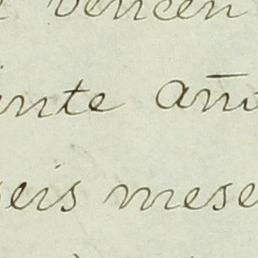 vencen
inte año
seis mese